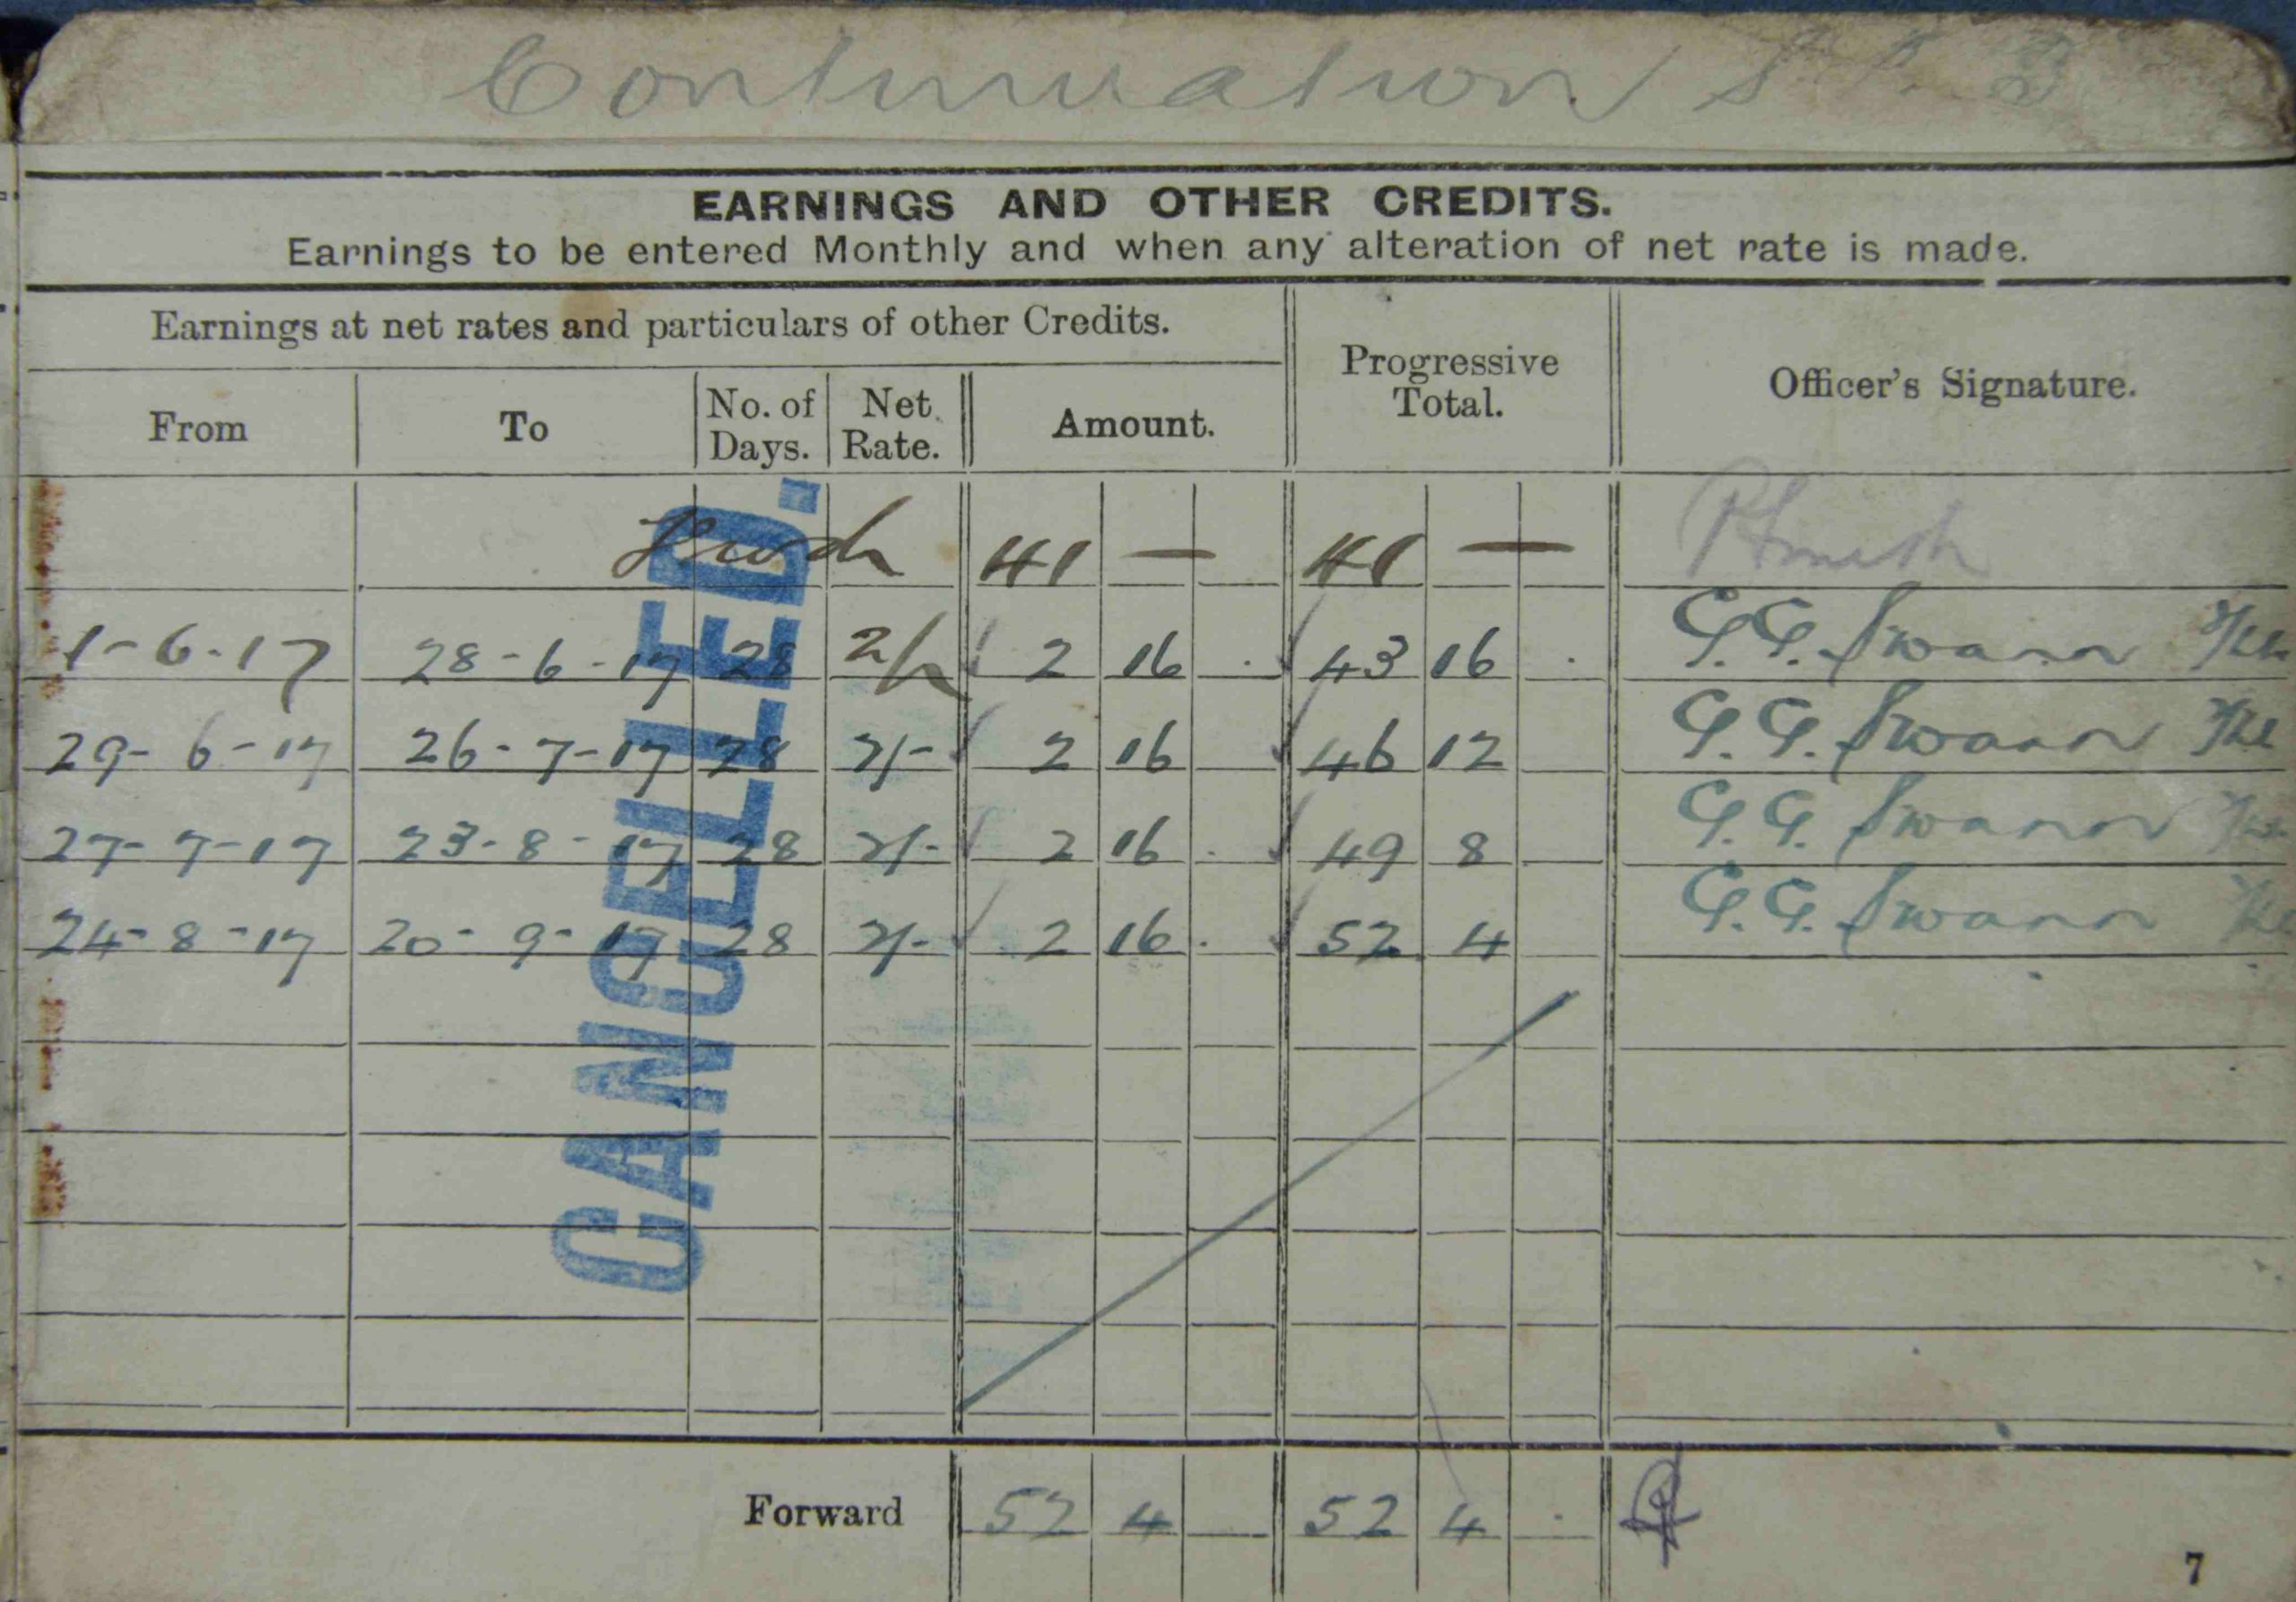 Continuation
EARNINGS AND OTHER CREDITS.
Earnings to be entered Monthly and when any alteration of net rate is made.
Earnings at net rates and particulars of other Credits.
Progressive Total.
Officer's Signature.
From To No. of Days. Net. Rate. Amount.
Fwd 41 — 41 —
1-6-17 28-6-17 28 2/- 2 16 . 43 16 . G.G. Swann
29-6-17 26-7-17 28 2/- 2 16 46 12 G.G. Swann
27-7-17 23-8-17 28 2/- 2 16 . 49 8 G.G. Swann
24-8-17 20-9-17 28 2/- 2 16 . 52 4 G.G. Swann
CANCELLED.
Forward 52 4 52 4 .
7